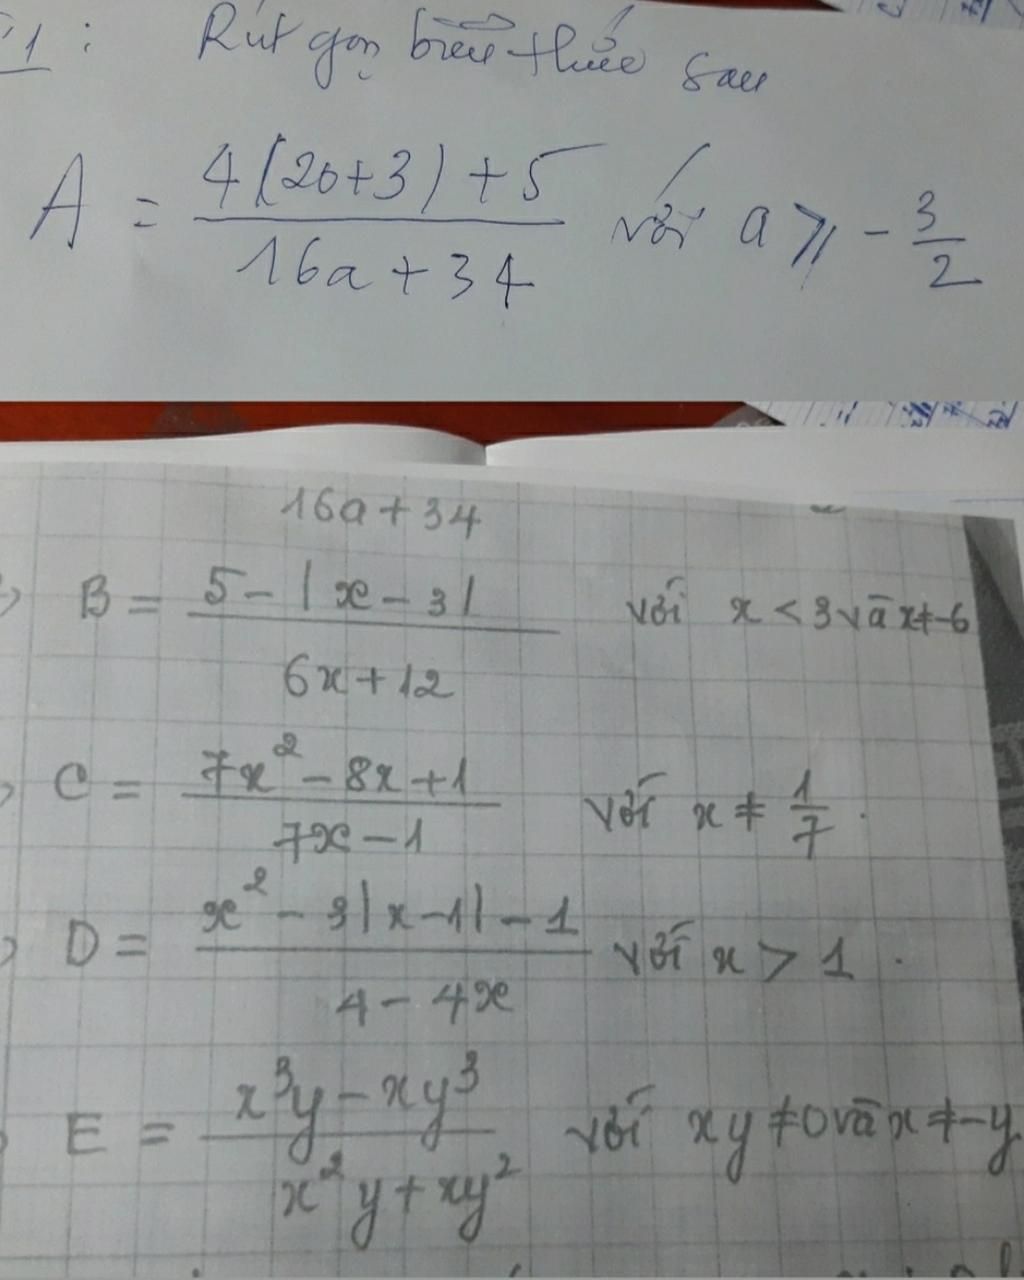 1: Rút gọn biểu thức sau
A = \frac{4(2a+3)+5}{16a+34} với a ⩾ -\frac{3}{2}
16a+34
B = \frac{5-|x-3|}{6x+12} với x < 3 và x ≠ -6
C = \frac{7x^2-8x+1}{7x-1} với x ≠ \frac{1}{7}.
D = \frac{x^2-3|x-1|-1}{4-4x} với x > 1.
E = \frac{x^3y-xy^3}{x^2y+xy^2} với xy ≠ 0 và x ≠ -y